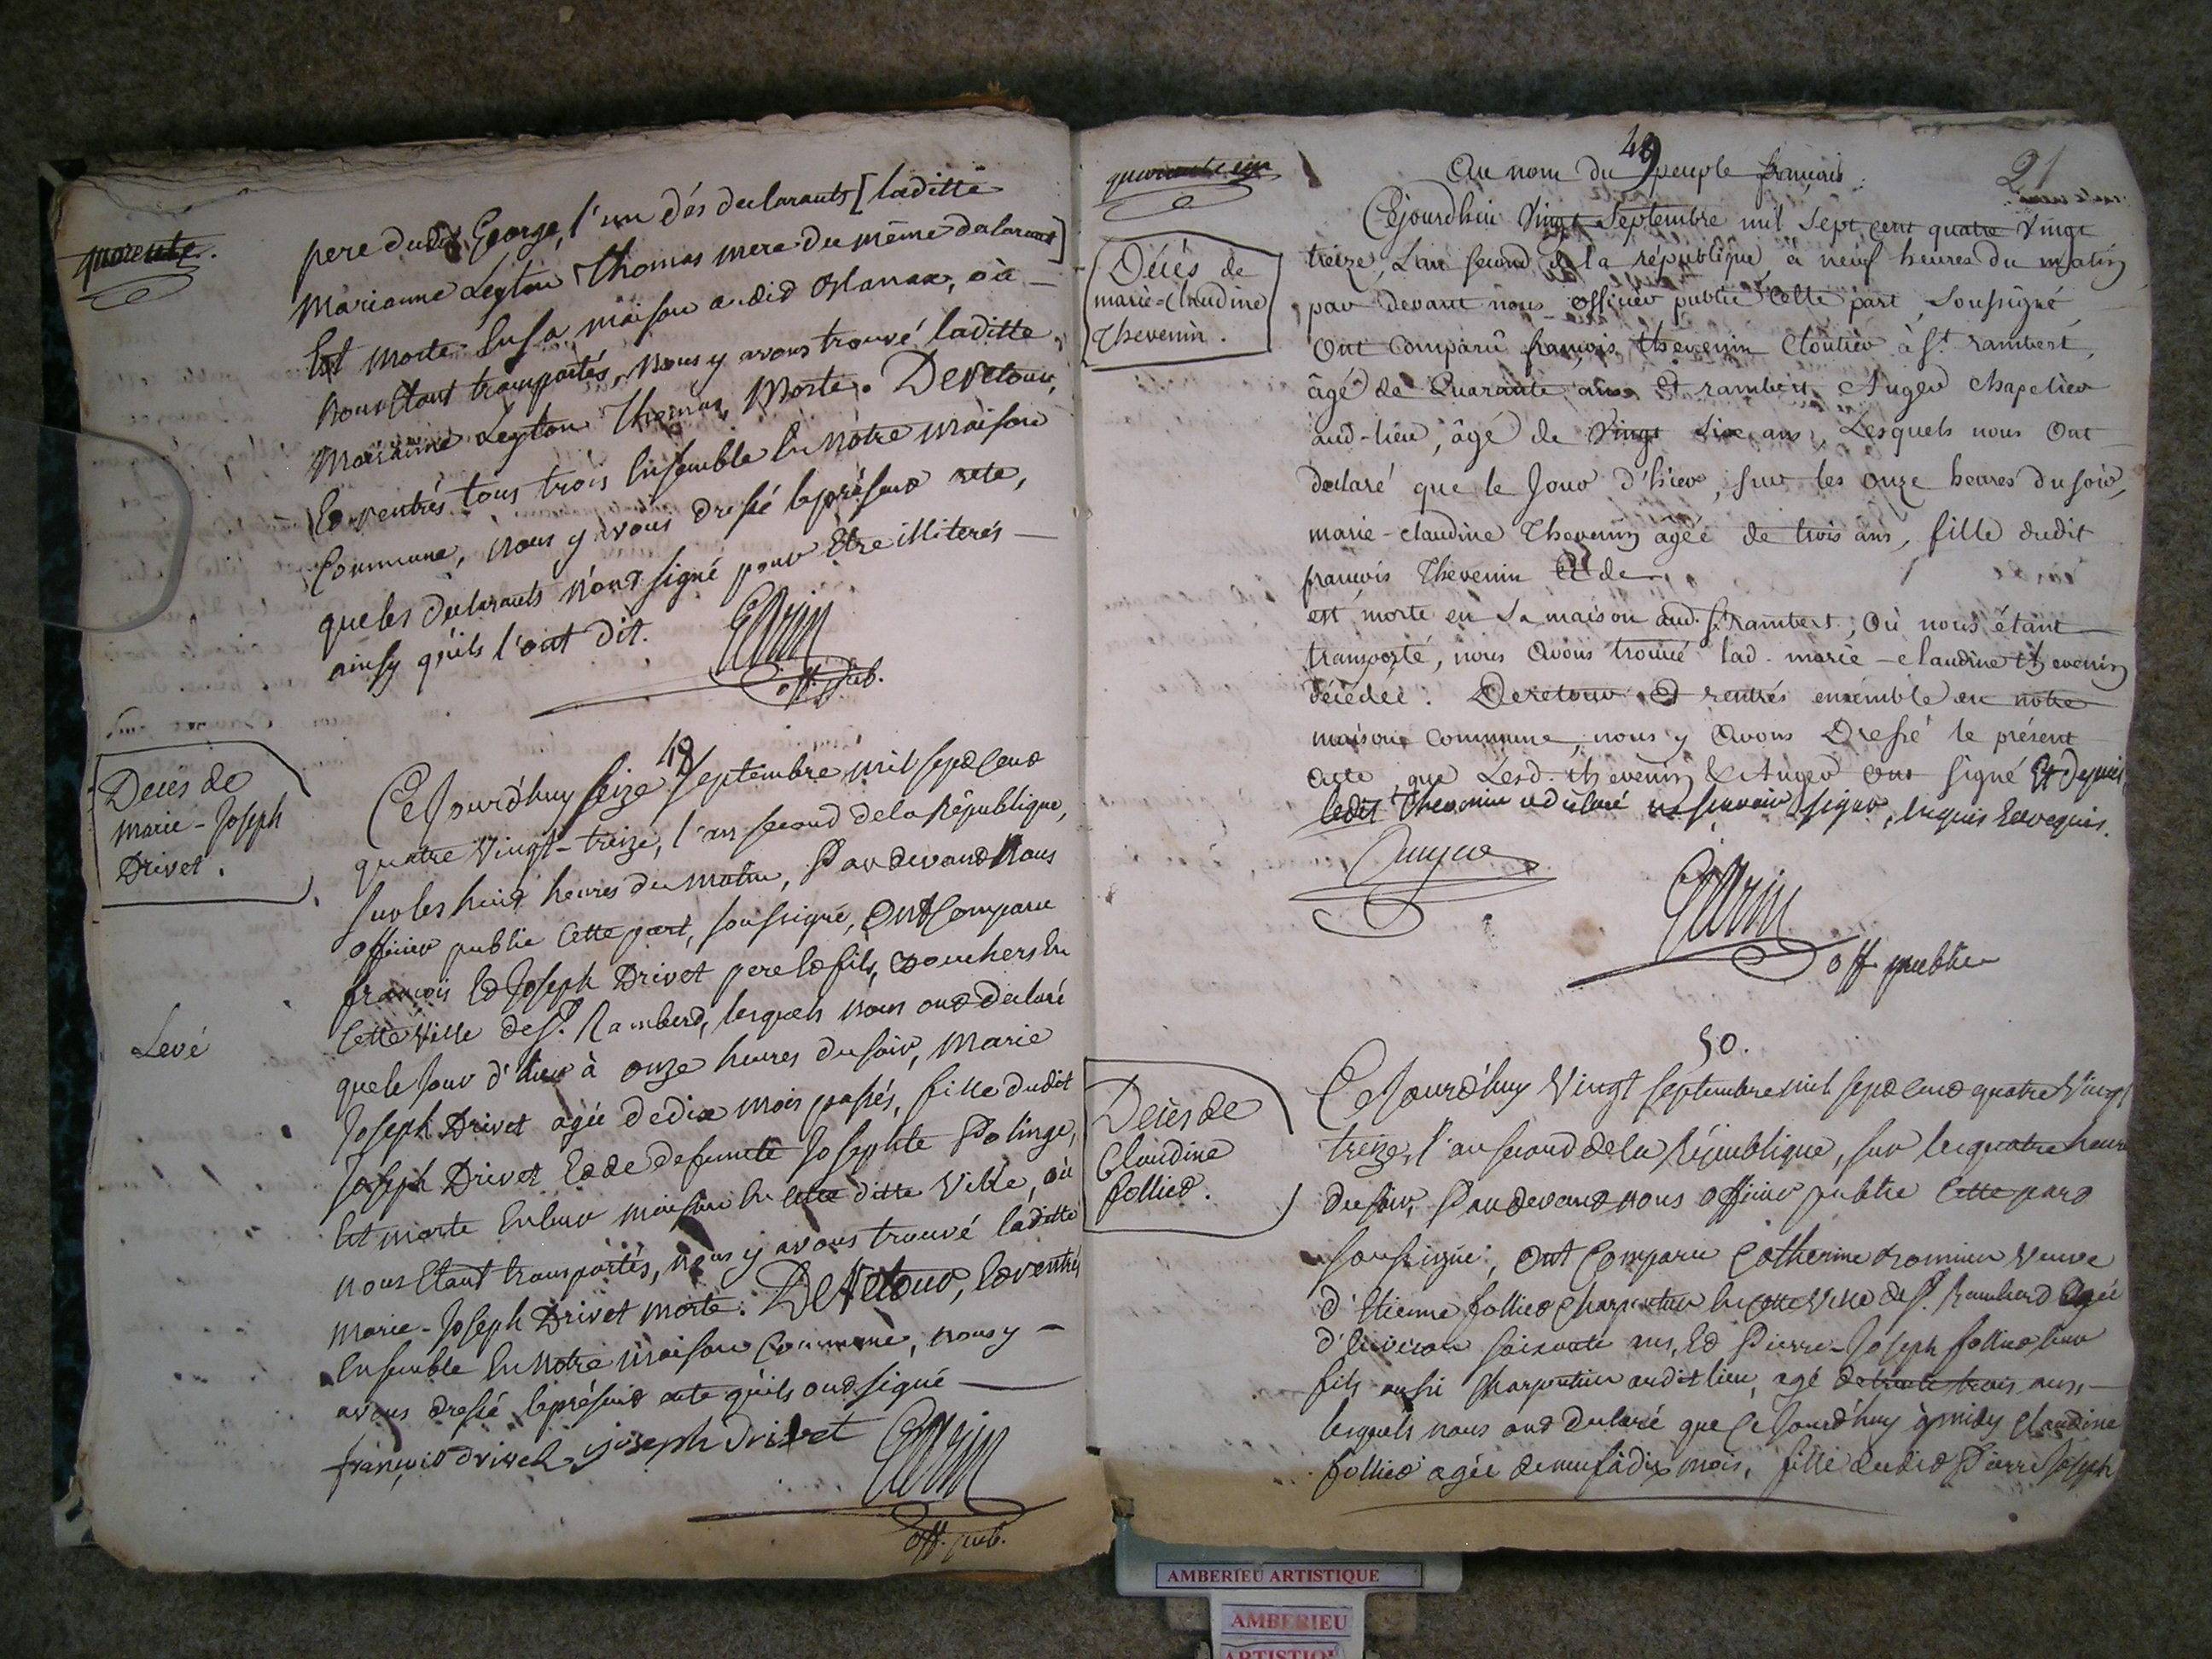 quarente.
pere dudit George, l'un dés declarants [laditte
Marianne Leyton Thomas mere du même declarant]
Est morte En sa maison audid , où
nous Etant transportés, nous y avons trouvé laditte
Marianne Leyton Thomas, Morte. De retour,
Ed rentrés tous trois Ensemble En nôtre maison
Commune, nous y avons dressé le présend acte,
que les declarants n'ond signé pour Etre illiterés
ainsy qu'ils l'ont dit.
off. pub.
48
Decés de
marie-Joseph
Drivet.
Levé
Ce Jourd'huy seize septembre mil sepd cend
quatre Vingt-treize, l'an second de la République,
sur les huid heures du matin, Par devand Nous
officier public Cette part, soussigné, Ont Comparu
françois Ed Joseph Drivet pere Ed fils, Bouchers En
Cette Ville de St. Ramberd, lesquels nous ond declaré
que le Jour d'hier à onze heures du soir, Marie
Joseph Drivet agée de dix mois passés, fille dudit
Joseph Drivet Ed de defunte Josephte Polinge,
Est morte En leur maison En cette ditte Ville, où
nous Etant transportés, nous y avons trouvé laditte
Marie-Joseph Drivet morte. De Retour, Ed rentrés
Ensemble En Notre maison Commune, nous y
avons dressé le présend acte qu'ils ond signé
françois drivet joseph drivet
off. pub.
quarante un
49
21
Au nom du peuple français.
Décés de
marie-claudine
Thevenin.
Cejourdhui Vingt Septembre mil sept cent quatre Vingt
treize, L'an second de la république, à neuf heures du matin
par devant nous officier public Cette part, soussigné
Ont Comparû françois thevenin Cloutier à St. rambert,
âgé de Quarante ans Et rambert Auger chapelier
aud-lieu, âgé de Vingt six ans, Lesquels nous Ont
declaré que le Jour d'hier, sur les onze heures du soir,
marie-claudine Thevenin âgée de trois ans, fille dudit
françois Thevenin Et de
est morte en sa maison aud. St rambert, Où nous étant
transporté, nous avons trouvé lad. marie-claudine thevenin
décédée. De retour Et rentrés ensemble en notre
maison commune, nous y Avons Dressé le présent
acte, que Lesd. thevenin & Auger ont signé Et depuis
ledit Thevenin a declaré ne sçavoir signer, Enquis Ed requis.
Auger
off. public
50.
Decés de
Claudine
follied.
Ce Jourd'huy Vingt septembre mil sepd cend quatre Vingt
treize, l'an second de la République, sur les quatre heures
du soir, Par devand nous officier public Cette pard
soussigné, Ont Comparu Catherine Veuve
d'Etienne follied Charpentier En Cette Ville de St. Ramberd agée
d'Environ soixante ans, Ed Pierre-Joseph follied leur
fils aussi Charpentier audit lieu, agé de trente trois ans,
lesquels nous ond declaré que Ce Jourd'huy à midy Claudine
follied agée de neuf à dix mois, fille dudid Pierre Joseph
AMBERIEU ARTISTIQUE
AMBERIEU
ARTISTIQUE